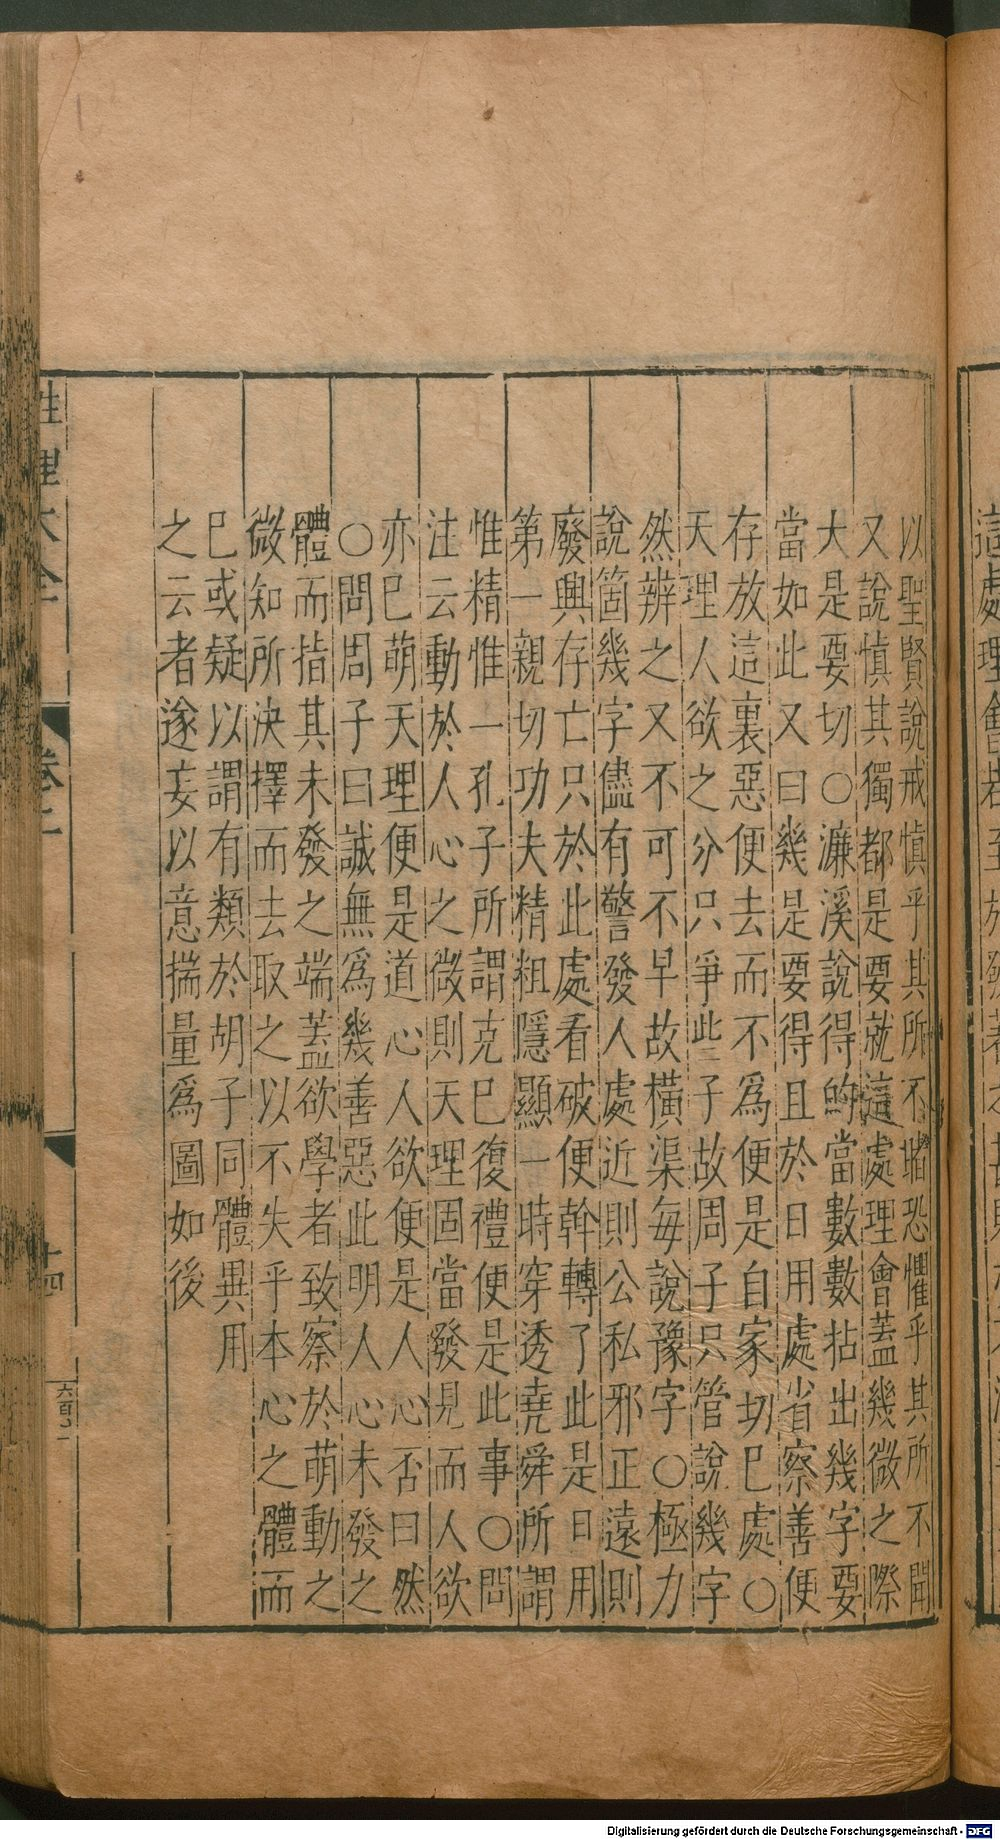 以聖賢說戒慎乎其所不睹恐懼乎其所不聞
又說慎其獨都是要就這處理會蓋幾微之際
大是要切○濂溪說得的當數數拈出幾字要
當如此又曰幾是要得且於日用處省察善便
存放這裏惡便去而不爲便是自家切已處○
天理人欲之分只爭此三子故周子只管說幾字
然辨之又不可不早故橫渠每說豫字○極力
說箇幾字儘有警發人處近則公私邪正遠則
廢興存亡只於此處看破便幹轉了此是日用
第一親切功夫精粗隱顯一時穿透堯舜所謂
惟精惟一孔子所謂克已復禮便是此事○問
注云動於人心之微則天理固當發見而人欲
亦已萌天理便是道心人欲便是人心否曰然
○問周子曰誠無爲幾善惡此明人心未發之
體而指其未發之端蓋欲學者致察於萌動之
微知所決擇而去取之以不失乎本心之體而
已或疑以謂有類於胡子同體異用
之云者遂妄以意揣量爲圖如後
性理大全
卷二
十四
這處理會
Digitalisierung gefördert durch die Deutsche Forschungsgemeinschaft - DFG